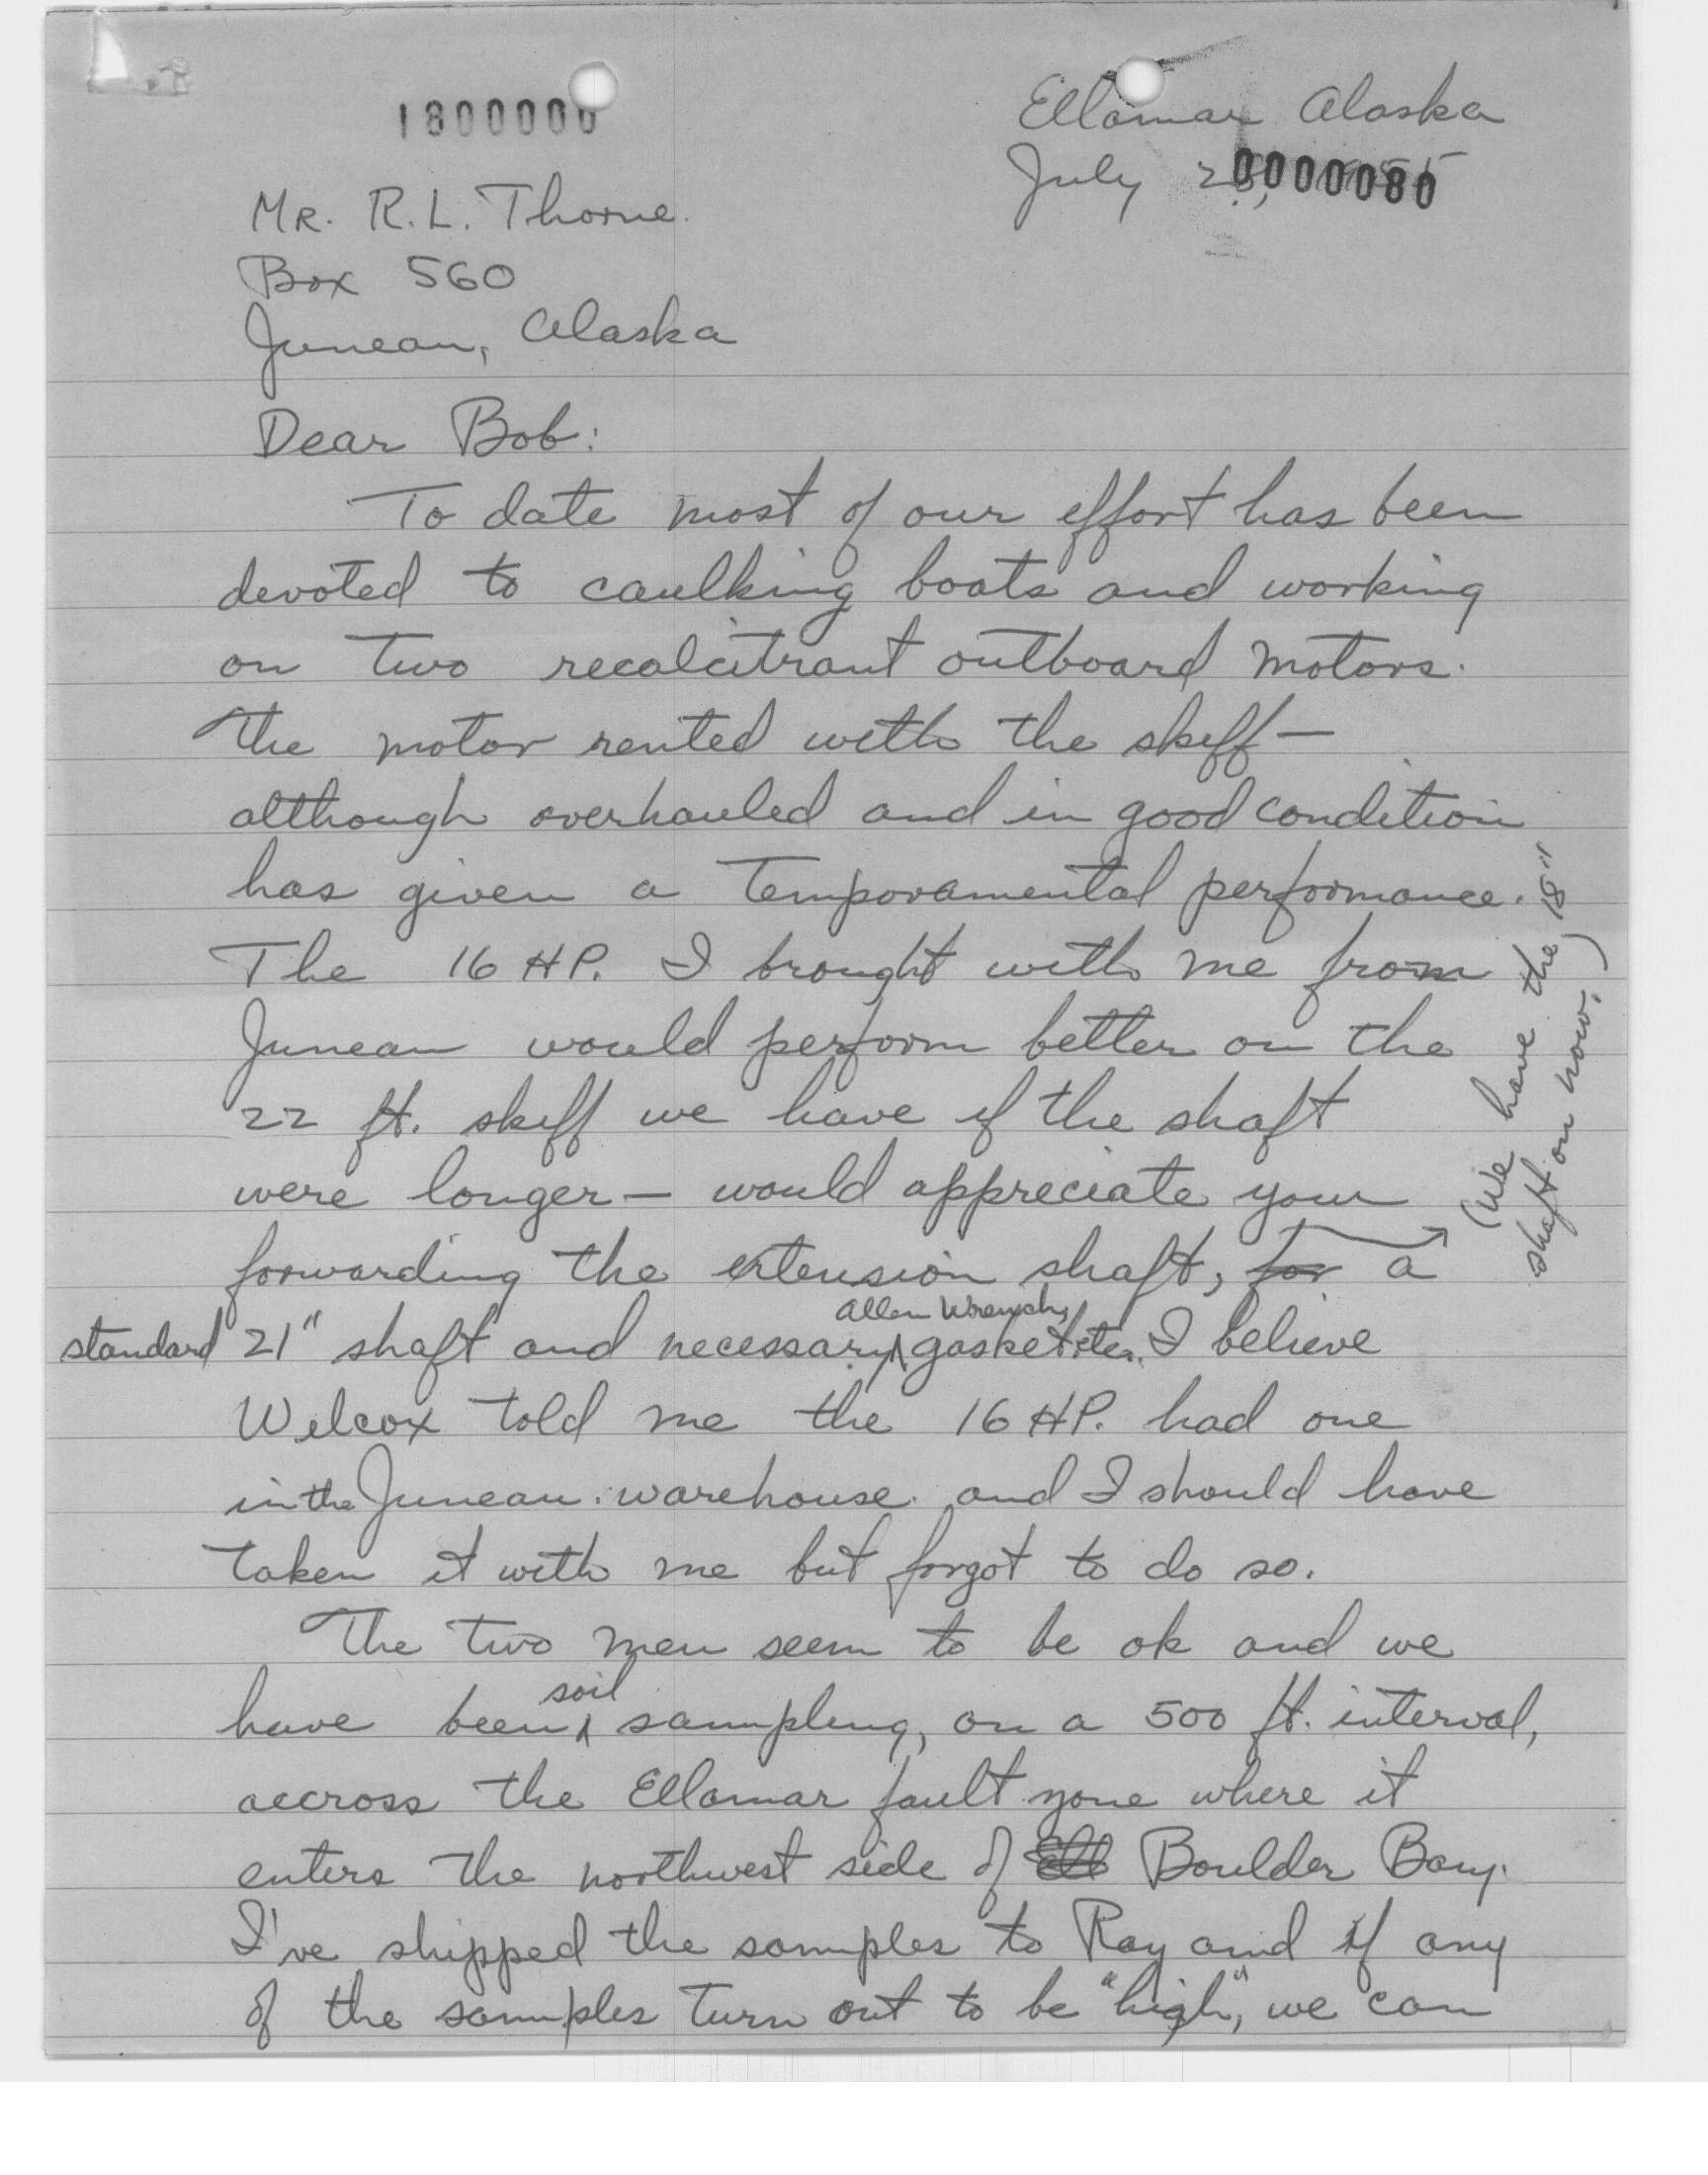 1800000
Ellamar Alaska
July 0000080
Mr. R.L. Thorne.
Box 560
Juneau, Alaska
Dear Bob:
To date most of our effort has been
devoted to caulking boats and working
on two recalcitrant outboard motors.
The motor rented with the skiff —
although overhauled and in good condition
has given a temporamental performance.
The 16 HP. I brought with me from
Juneau would perform better on the
22 ft. skiff we have if the shaft
were longer — would appreciate your
forwarding the extension shaft, for a
(We have the 18"
shaft on now.)
Allen Wrench,
standard 21" shaft and necessary gasket etc. I believe
Wilcox told me the 16 HP. had one
in the Juneau warehouse and I should have
taken it with me but forgot to do so.
The two men seem to be ok and we
soil
have been sampling, on a 500 ft. interval,
accross the Ellamar fault zone where it
enters the northwest side of Ell Boulder Bay.
I've shipped the samples to Ray and if any
of the samples turn out to be "high", we can